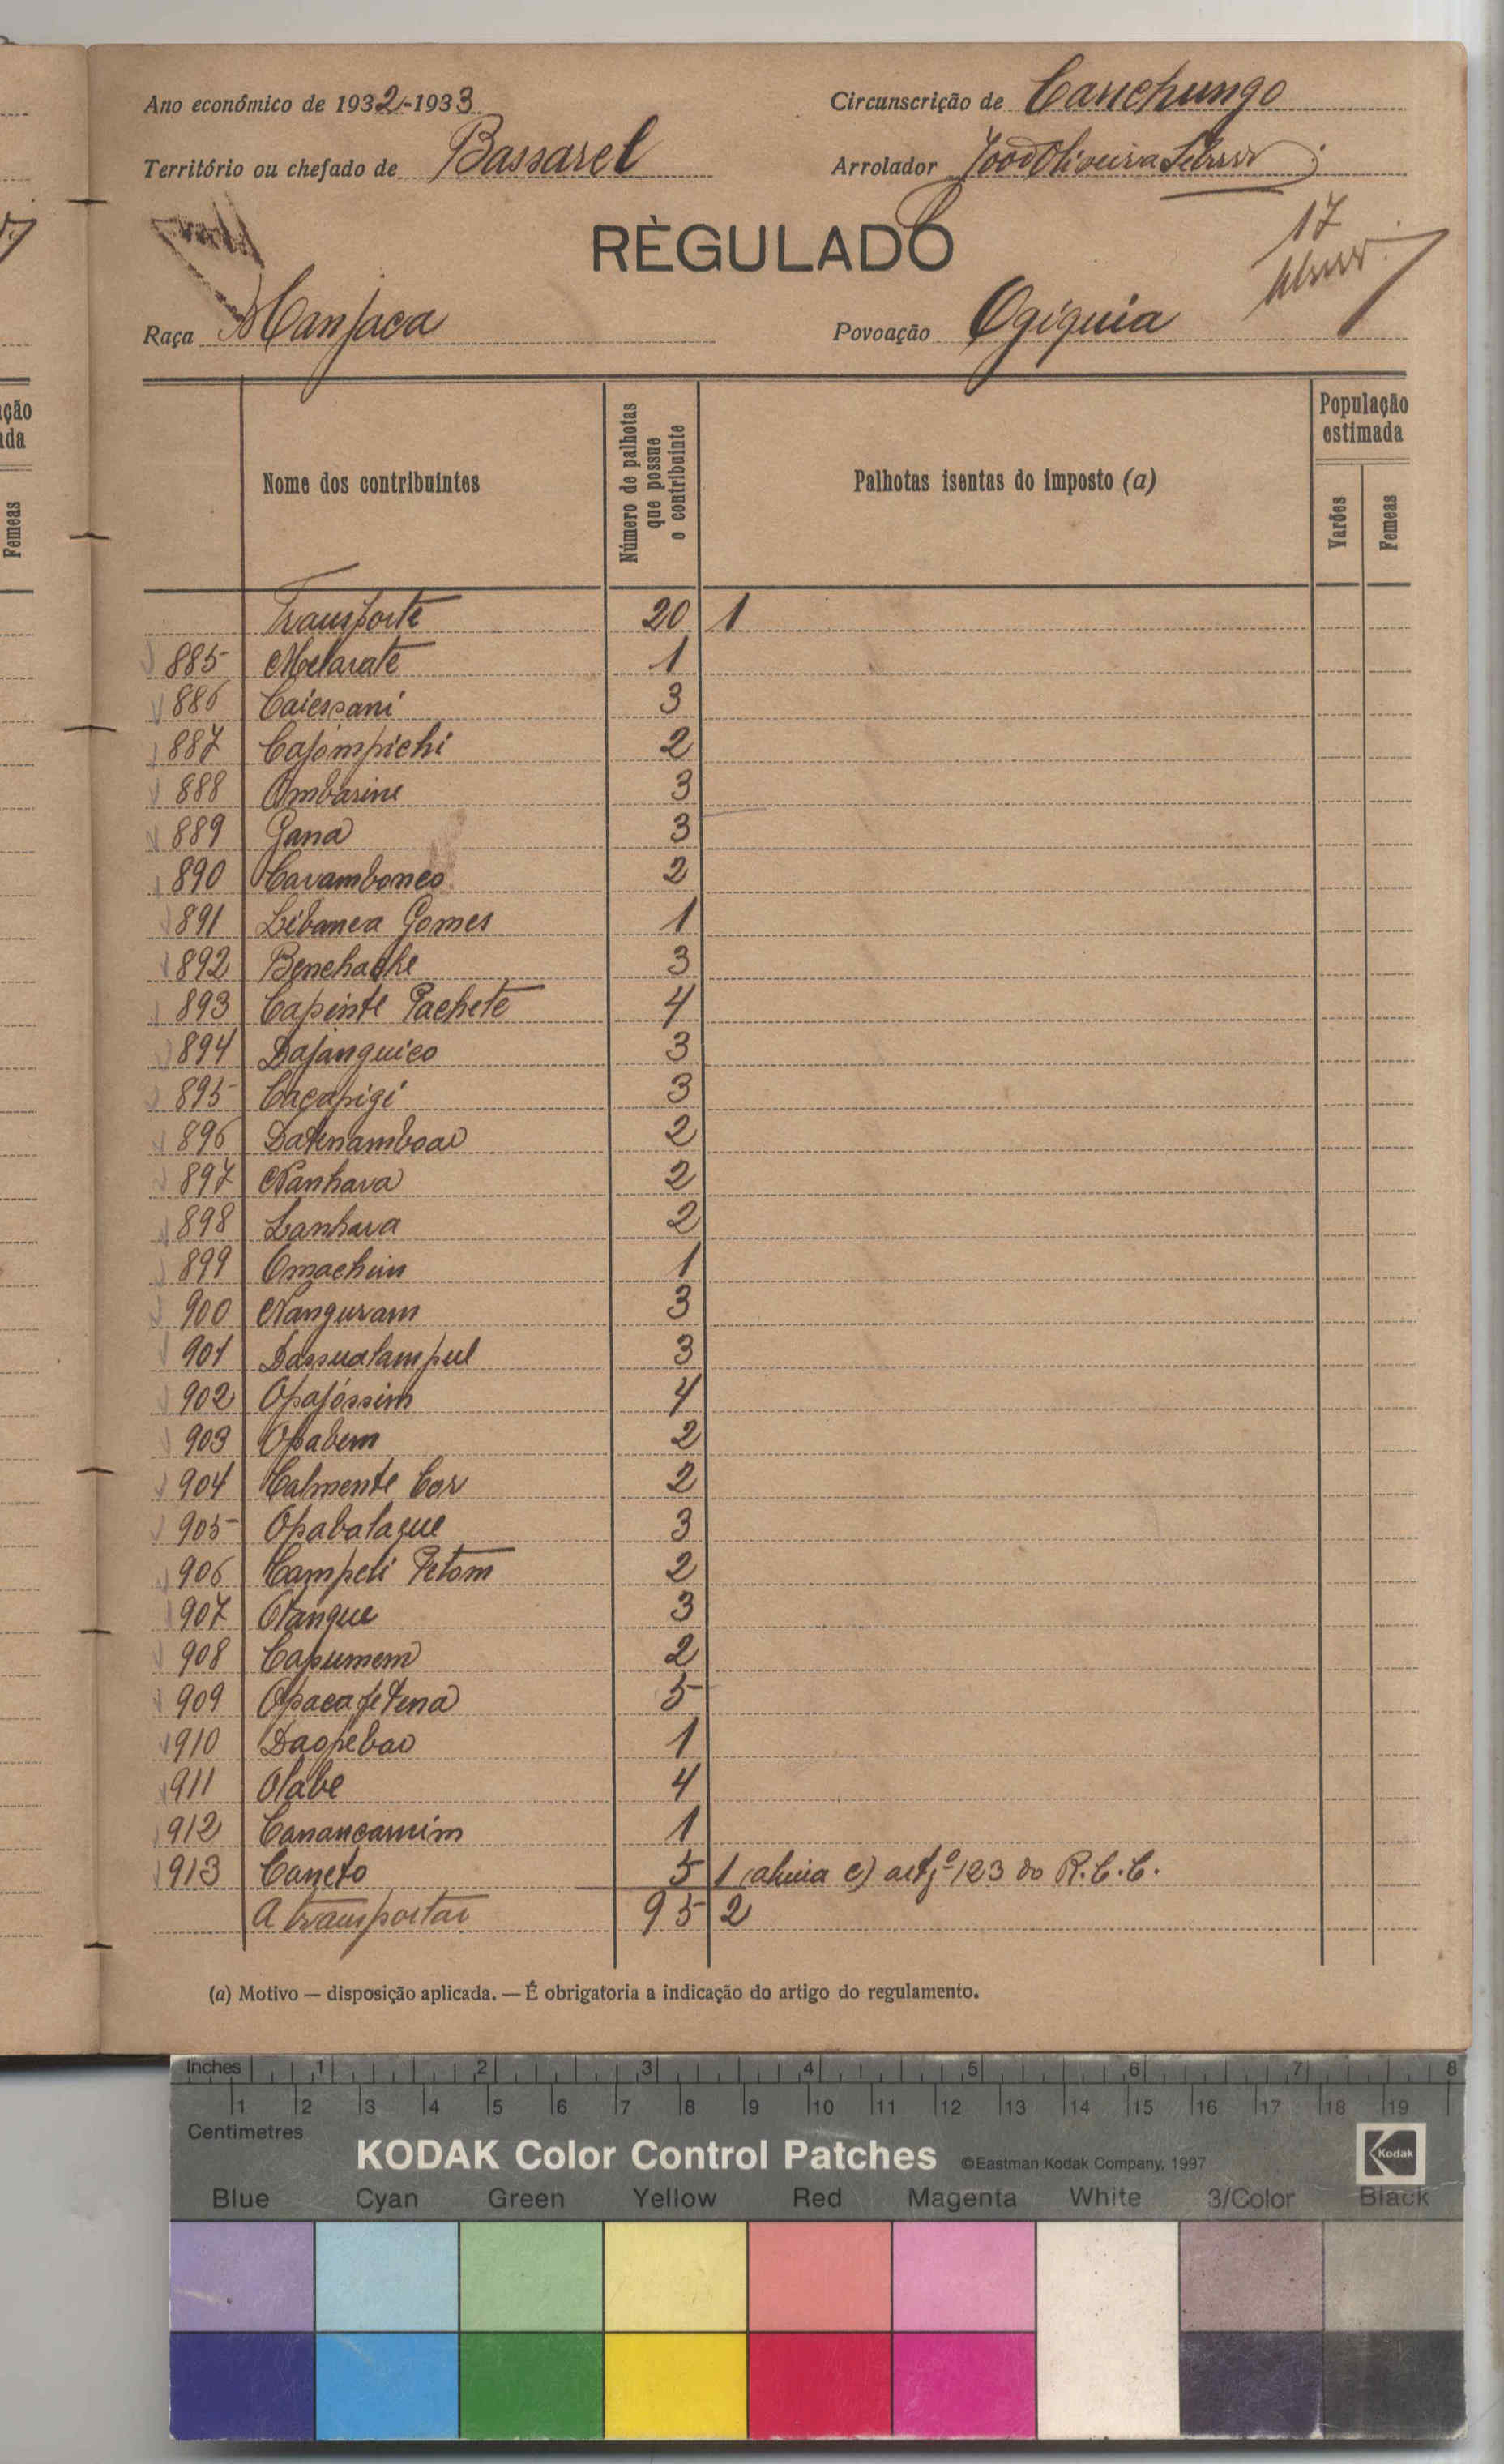 Ano económico de 1932-1933
Circunscrição de Canchungo
Território ou chefado de Bassarel
Arrolador João Oliveira
REGULADO
17
Raça Manjaca
Povoação Ogiquia
ção
da
Femeas
Nome dos contribuintes
Número de palhotas que possue o contribuinte
Palhotas isentas do imposto (a)
População estimada
Varões
Femeas
Transporte 20 1
885 Melarate 1
886 Caiessani 3
887 Cajómpichi 2
888 Ombarine 3
889 Gana 3
890 Carambonco 2
891 Libanea Gomes 1
892 Benehache 3
893 Capinte Pachete 4
894 Dajanquico 3
895 Caçapigi 3
896 Datenamboao 2
897 Nanhara 2
898 Lanhara 2
899 Omachim 1
900 Nanguram 3
901 Dassualampul 3
902 Opajóssim 4
903 Opabem 2
904 Calmente Cor 2
905 Opabalaque 3
906 Campeli Petom 2
907 Otangue 3
908 Capumem 2
909 Opaca 5
910 Daopebao 1
911 Olabe 4
912 Canancamim 1
913 Caneto 5 1 (alinia c) artgº 123 do R.C.C.
A transportar 95 2
(a) Motivo — disposição aplicada. — É obrigatoria a indicação do artigo do regulamento.
Inches 1 2 3 4 5 6 7 8
1 2 3 4 5 6 7 8 9 10 11 12 13 14 15 16 17 18 19
Centimetres
KODAK Color Control Patches ©Eastman Kodak Company, 1997 Kodak
Blue Cyan Green Yellow Red Magenta White 3/Color Black